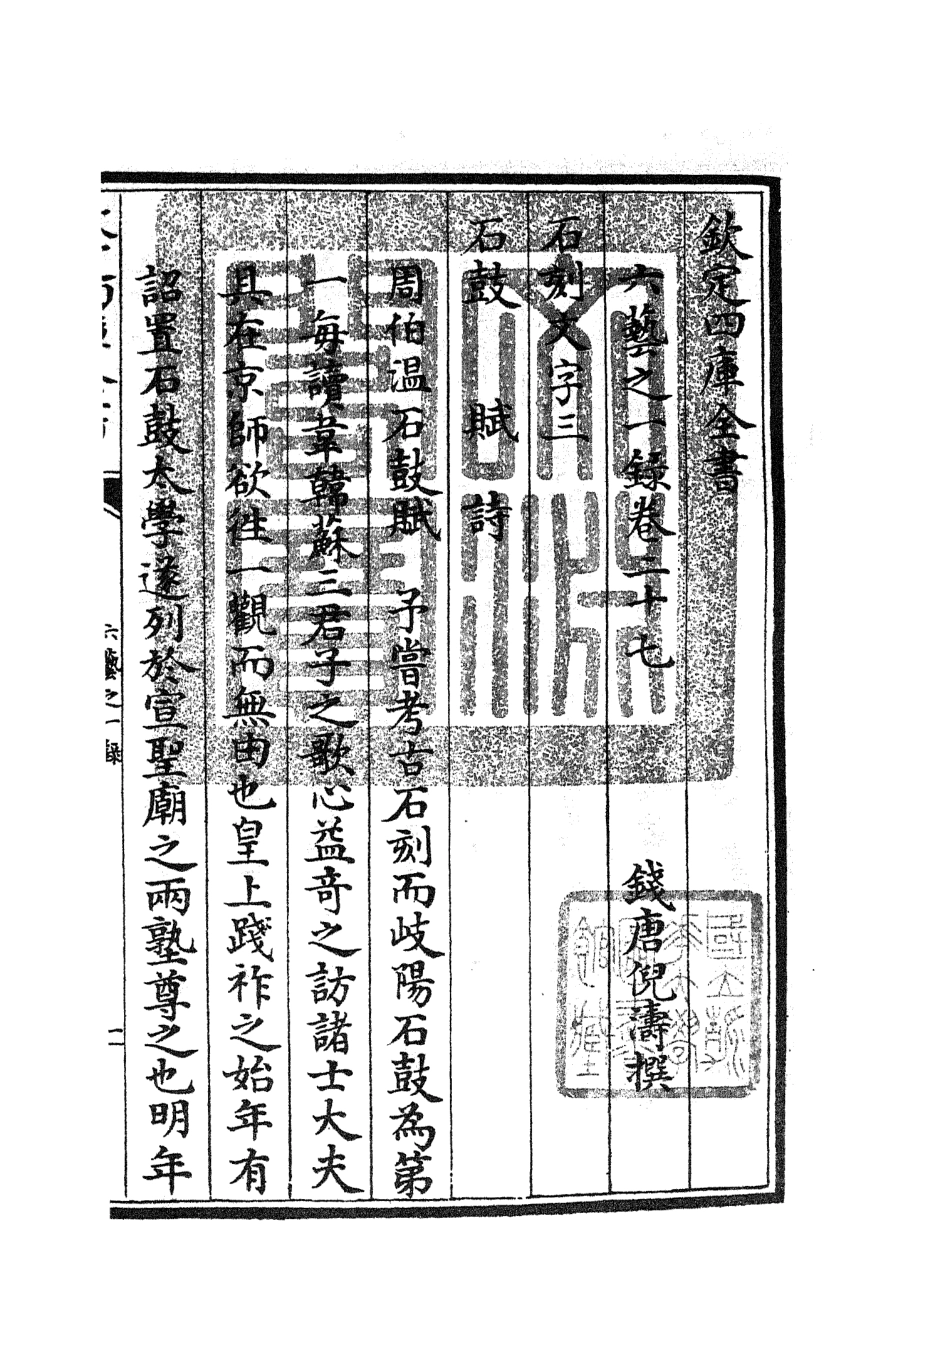 欽定四庫全書
六藝之一錄卷二十七
錢唐倪濤撰
石刻文字三
石鼓 賦 詩
周伯温石鼓賦 予嘗考古石刻而岐陽石鼓為第
一每讀韋韓蘇三君子之歌心益竒之訪諸士大夫
具在京師欲徃一觀而無由也皇上踐祚之始年有
詔置石鼓太學遂列於宣聖廟之兩塾尊之也明年
六藝之一録